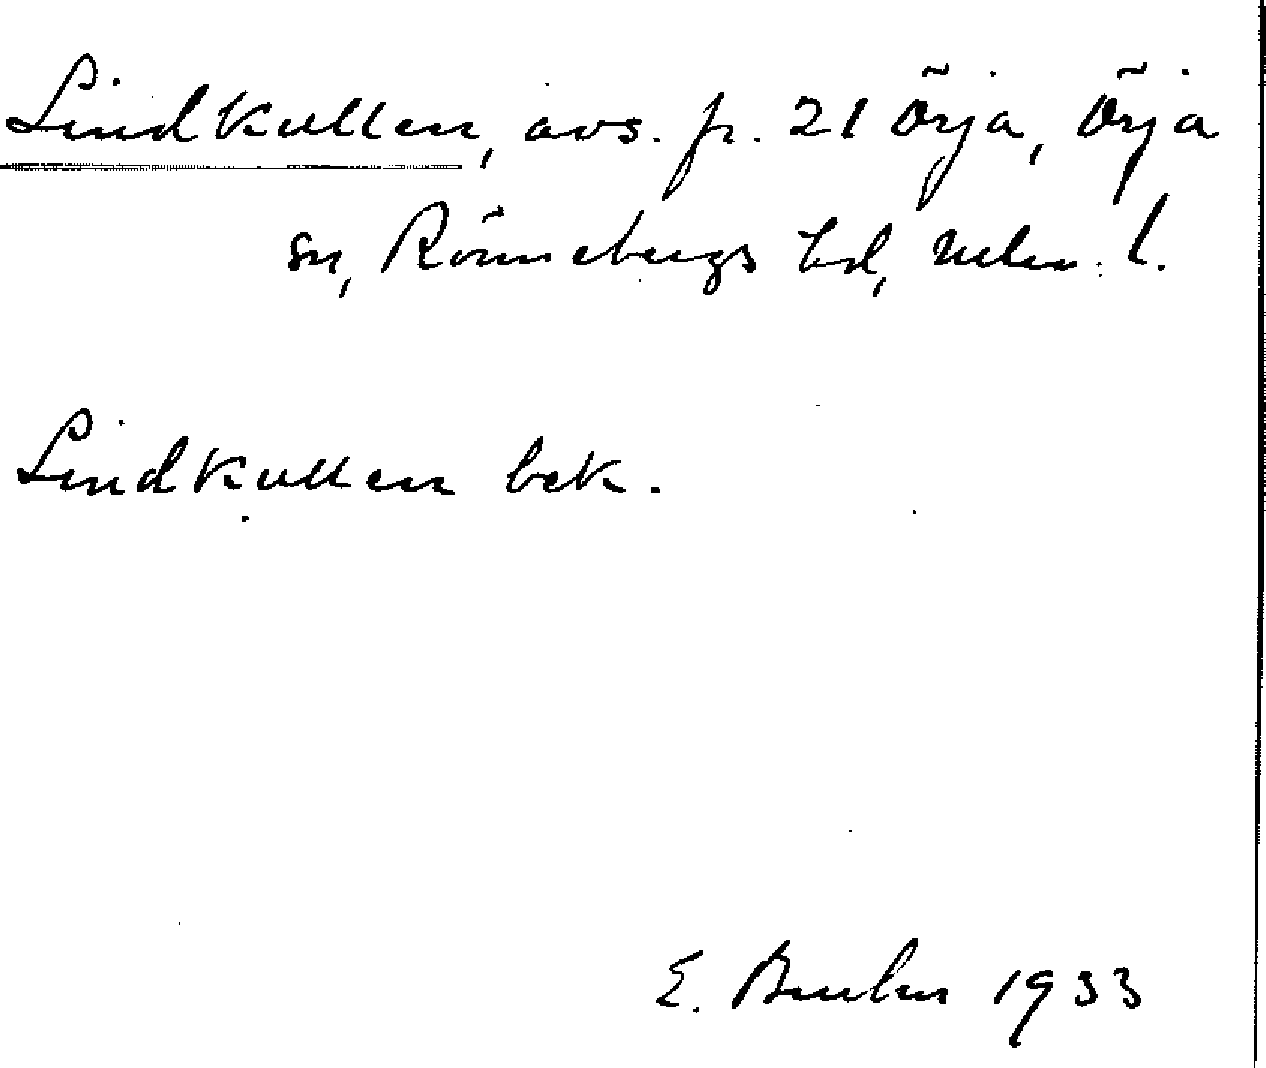 Lindkullen, avs. fr. 21 Örja, Örja
sn, Rönnebergs hd, Mlm. l.
Lindkullen bek.
E. 1933